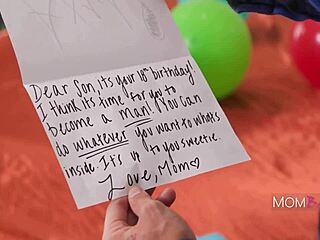 Dear Son, it's your 18th birthday!
I think it's time for you to
become a man! You can
do whatever you want to what's
inside. It's up to you sweetie.
Love, Mom♡
MOM